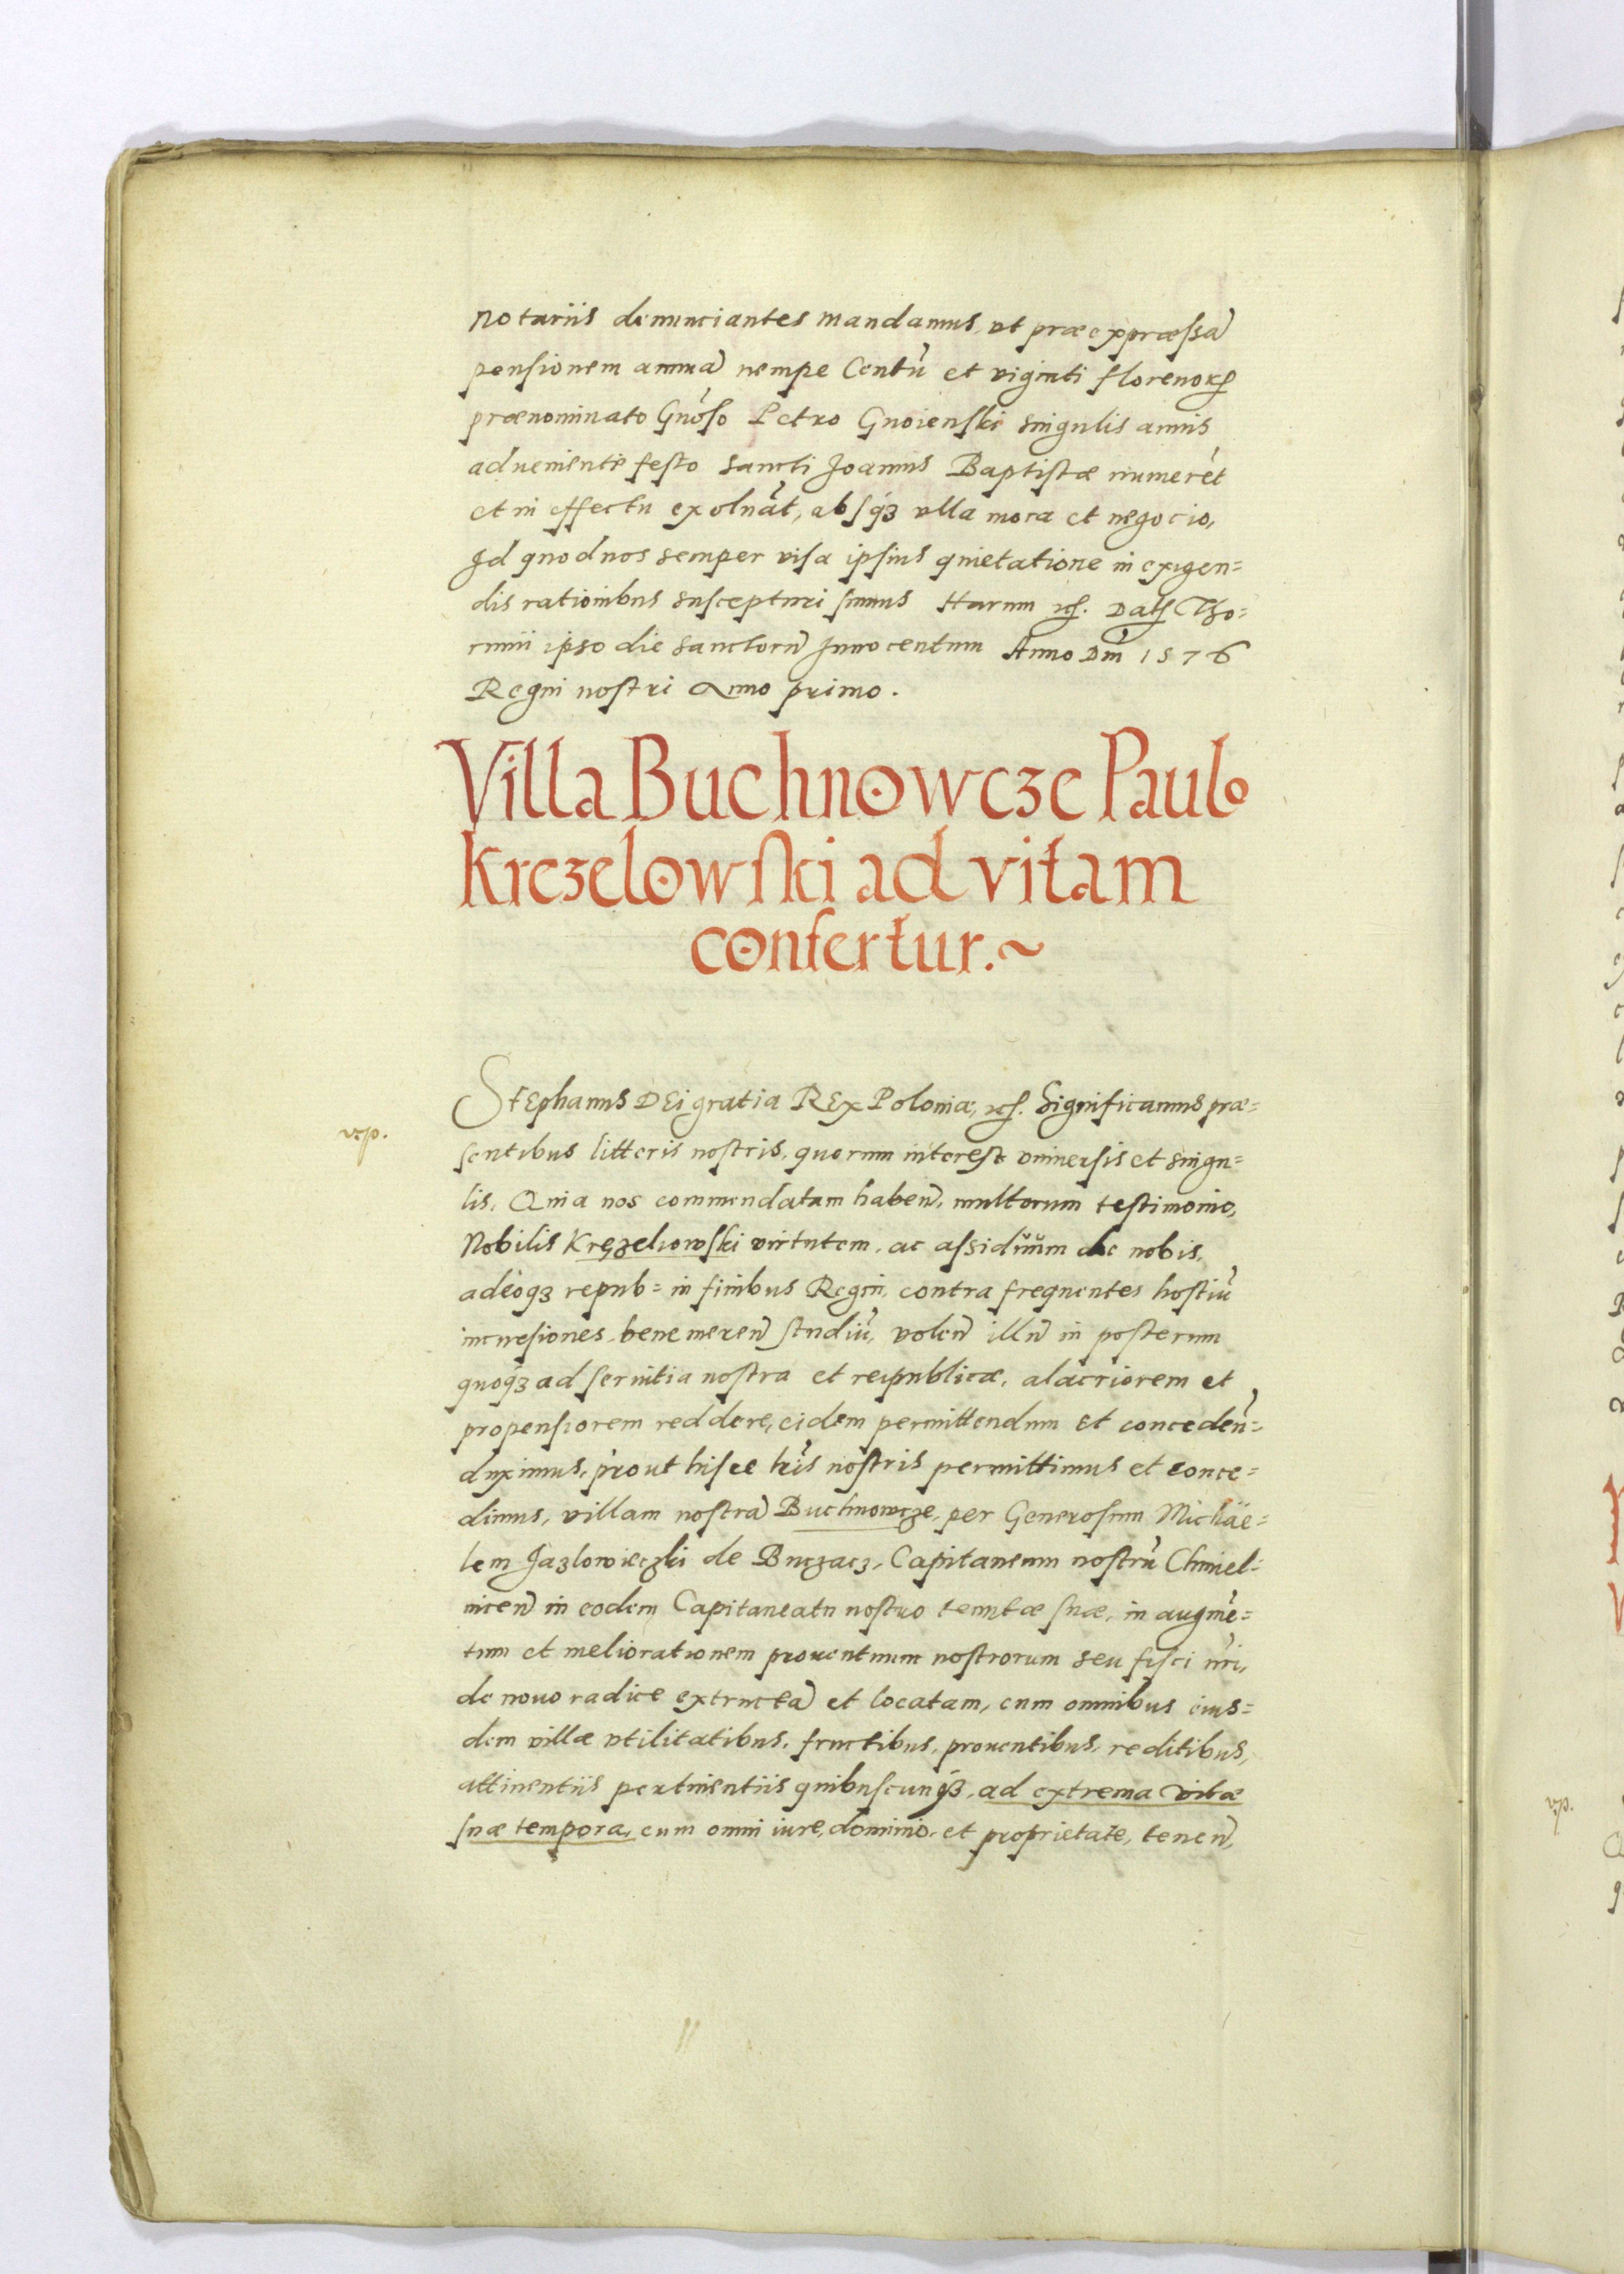 notariis denunciantes mandamus, vt præexpræssã
pensionem annuã nempe Centũ et viginti florenoꝝ
prænominato Gnõso Petro Gnoienski singulis annis
aduenientẽ festo sancti Joannis Baptistæ numerẽt
et in effectu exoluãt, absqꝫ vlla mora et negocio,
Id quod nos semper visa ipsius quietatione in exigen=
dis rationibus suscepturi sumus Harum ꝛcꝭ. Datꝭ Tho=
runii ipso die sanctorũ Innocentum Anno Dm̃ 1576
Regni nostri Anno primo.
Villa Buchnowcze Paulo
Krezelowski ad vitam
confertur.~
Stephanus DEi gratia REx Poloniæ, ꝛcꝭ. Significamus præ=
sentibus litteris nostris, quorum interest vniuersis et singu=
lis. Quia nos commendatam haben̄, multorum testimonio,
Nobilis Kręzelowski virtutem, ac assiduum de nobis,
adeoqꝫ repub= in finibus Regni, contra frequentes hostiũ
incursiones, bene meren̄ studiũ, volen̄ illũ in posterum
quoqꝫ ad seruitia nostra et reipublicæ, alacriorem et
propensiorem reddere, eidem permittendum et conceden̄=
duximus, prout hisce lr̃is nostris permittimus et conce=
dimus, villam nostrã Buchnowcze, per Generosum Michäe=
lem Jazlowieczki de Buczacz, Capitaneum nostrũ Chmiel=
nicen̄ in eodem Capitaneatu nostro tenutæ suæ, in augmẽ=
tum et meliorationem prouentuum nostrorum seu fisci nr̃i,
de nouo radice extructã et locatam, cum omnibus eius=
dem villæ vtilitatibus, fructibus, prouentibus, reditibus,
attinentiis pertinentiis quibuscunqꝫ, ad extrema vitæ
suæ tempora, cum omni iure, dominio, et proprietate, tenen̄,